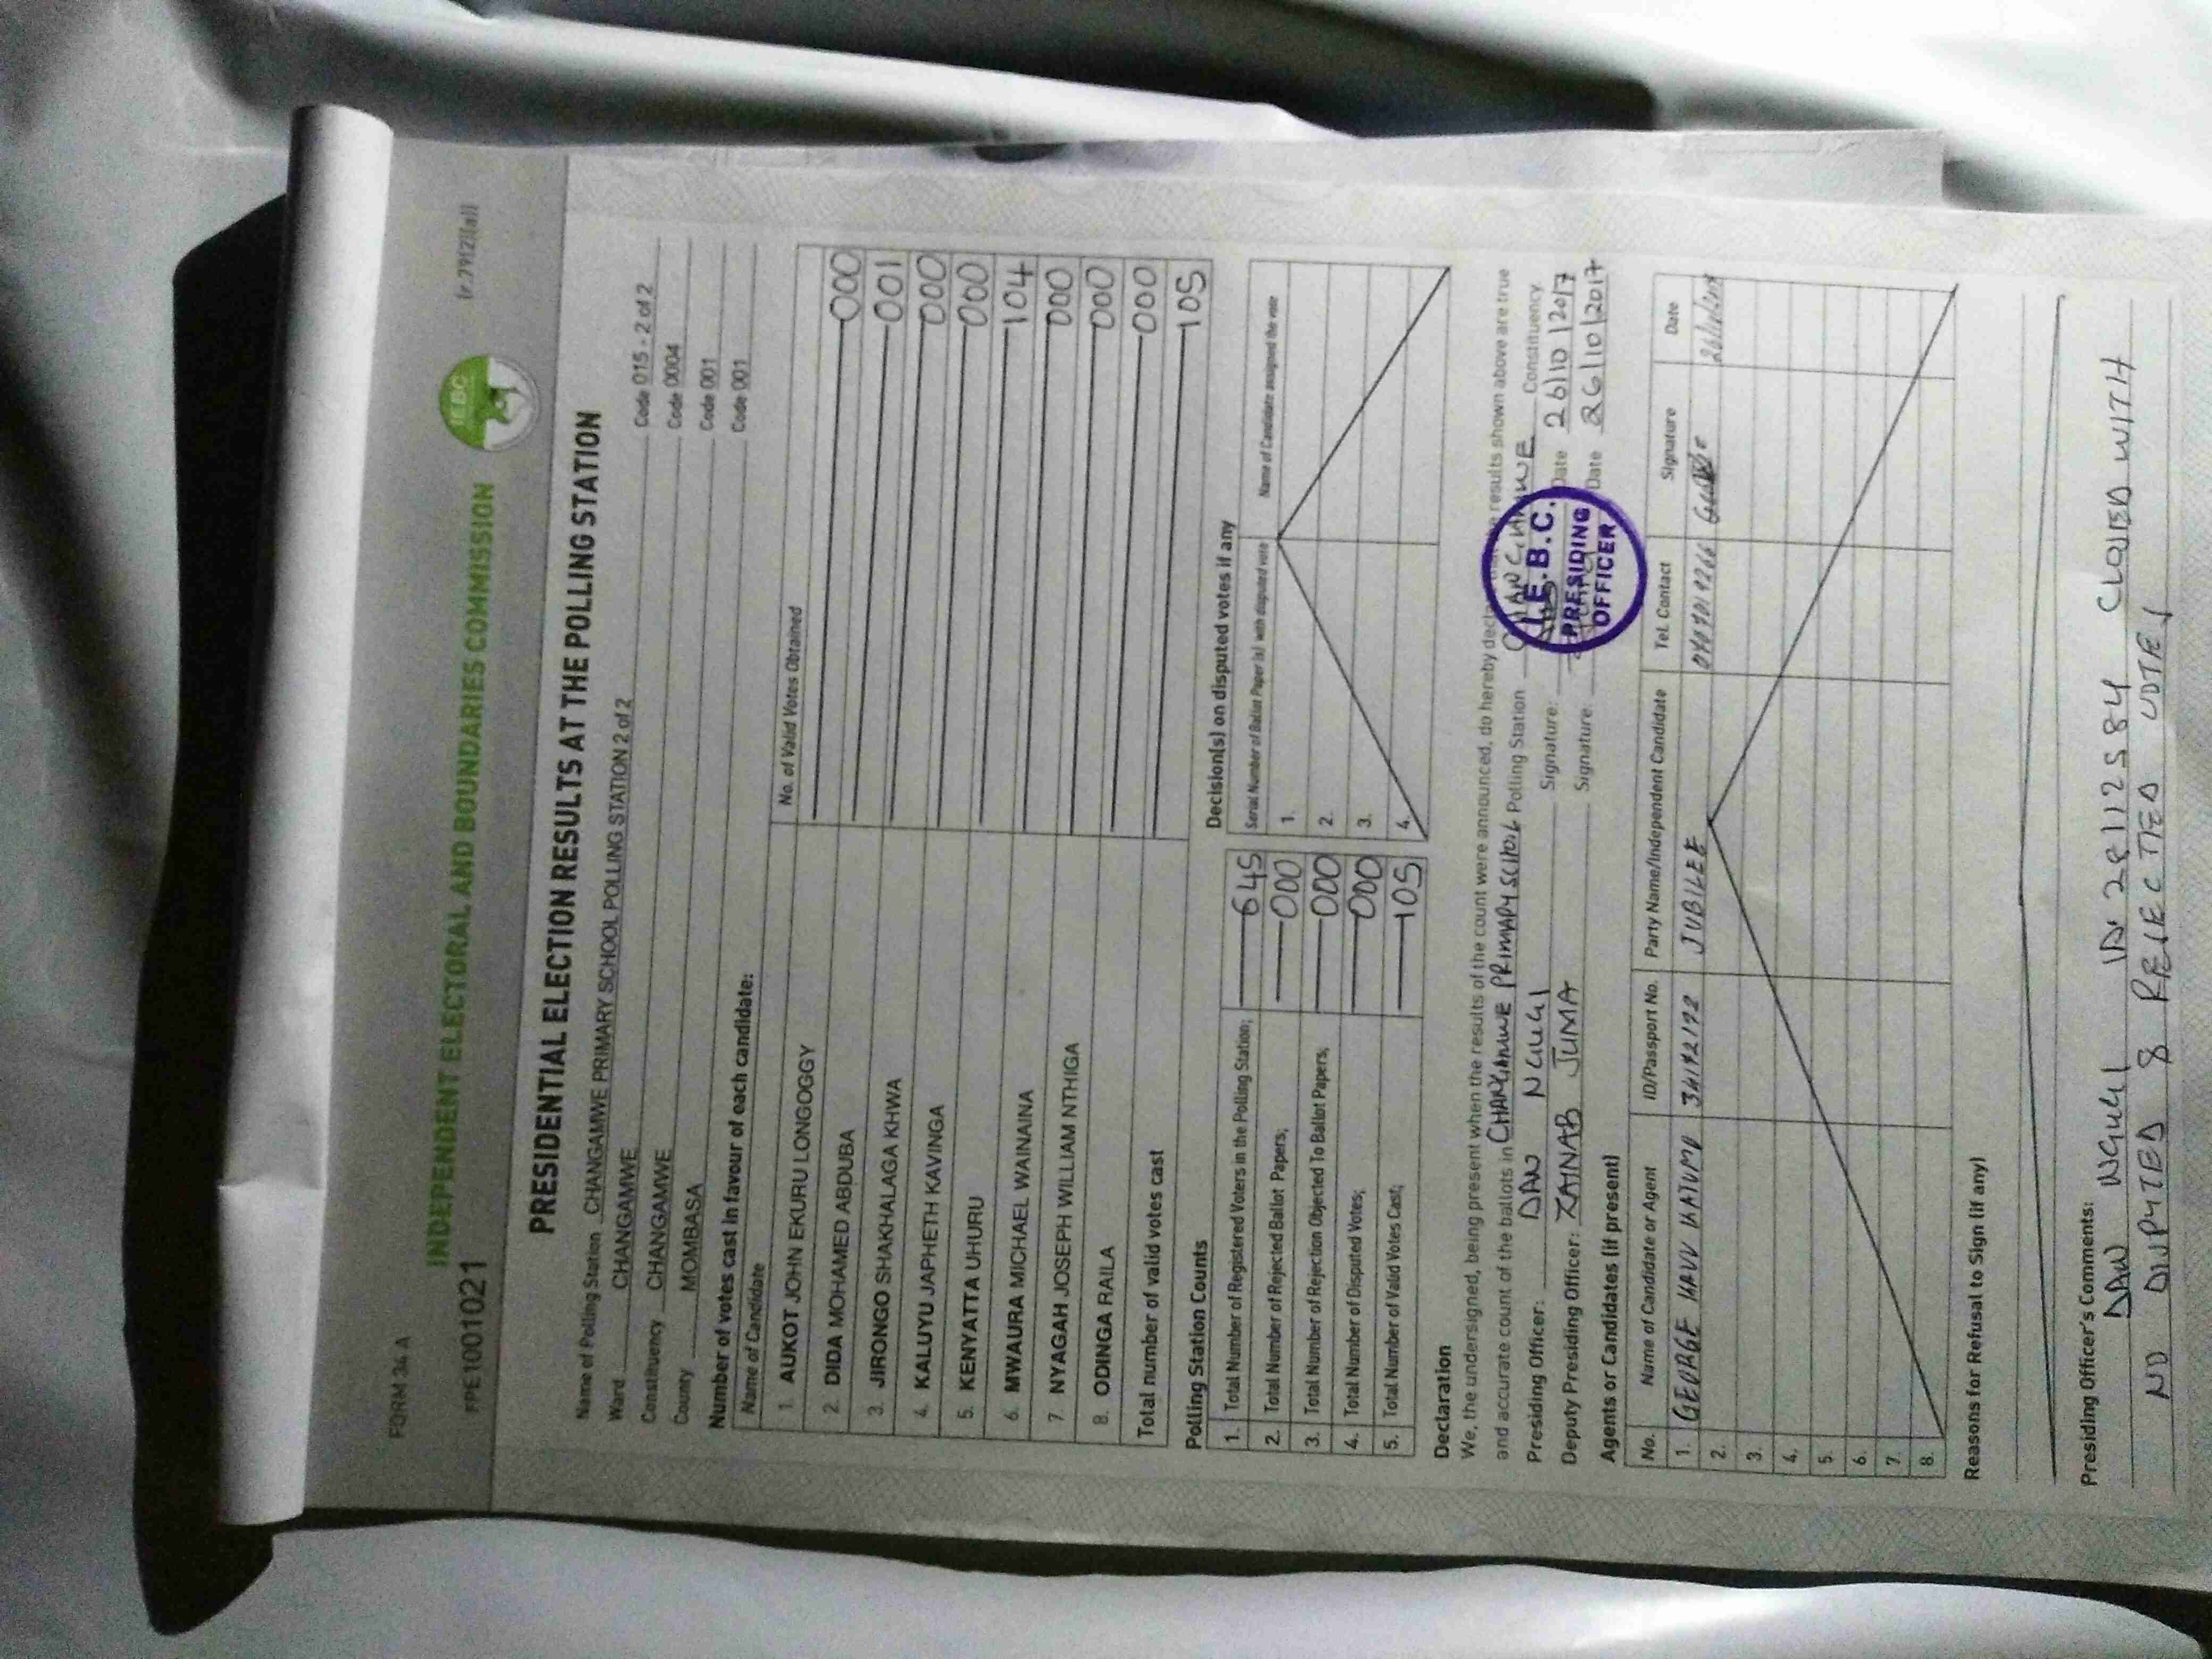 FORM 34 A
(r.79(2)(a))
INDEPENDENT ELECTORAL AND BOUNDARIES COMMISSION
IEBC
PE1001021
PRESIDENTIAL ELECTION RESULTS AT THE POLLING STATION
Name of Polling Station CHANGAMWE PRIMARY SCHOOL POLLING STATION 2 of 2 Code 015 - 2 of 2
Ward CHANGAMWE Code 0004
Constituency CHANGAMWE Code 001
County MOMBASA Code 001
Number of votes cast in favour of each candidate:
Name of Candidate No. of Valid Votes Obtained
1. AUKOT JOHN EKURU LONGOGGY 000
2. DIDA MOHAMED ABDUBA 001
3. JIRONGO SHAKHALAGA KHWA 000
4. KALUYU JAPHETH KAVINGA 000
5. KENYATTA UHURU 104
6. MWAURA MICHAEL WAINAINA 000
7. NYAGAH JOSEPH WILLIAM NTHIGA 000
8. ODINGA RAILA 000
Total number of valid votes cast 105
Polling Station Counts
1. Total Number of Registered Voters in the Polling Station; 645
2. Total Number of Rejected Ballot Papers; 000
3. Total Number of Rejection Objected To Ballot Papers; 000
4. Total Number of Disputed Votes; 000
5. Total Number of Valid Votes Cast; 105
Decision(s) on disputed votes if any
Serial Number of Ballot Paper (s) with disputed vote Name of Candidate assigned the vote
1.
2.
3.
4.
Declaration
We, the undersigned, being present when the results of the count were announced, do hereby results shown above are true
and accurate count of the ballots in CHANGAMWE PRIMARY SCHOOL Polling Station CHANGAMWE Constituency.
Presiding Officer: DAN NGULI Signature: Date 26/10/2017
Deputy Presiding Officer: ZAINAB JUMA Signature. Date 26/10/2017
I.E.B.C.
PRESIDING
OFFICER
Agents or Candidates (if present)
No. Name of Candidate or Agent ID/Passport No. Party Name/Independent Candidate Tel. Contact Signature Date
1. GEORGE JUBILEE
2.
3.
4.
5.
6.
7.
8.
Reasons for Refusal to Sign (if any)
Presiding Officer's Comments:
DAN NGULI CLOSED WITH
NO DISPUTED & REJECTED VOTES